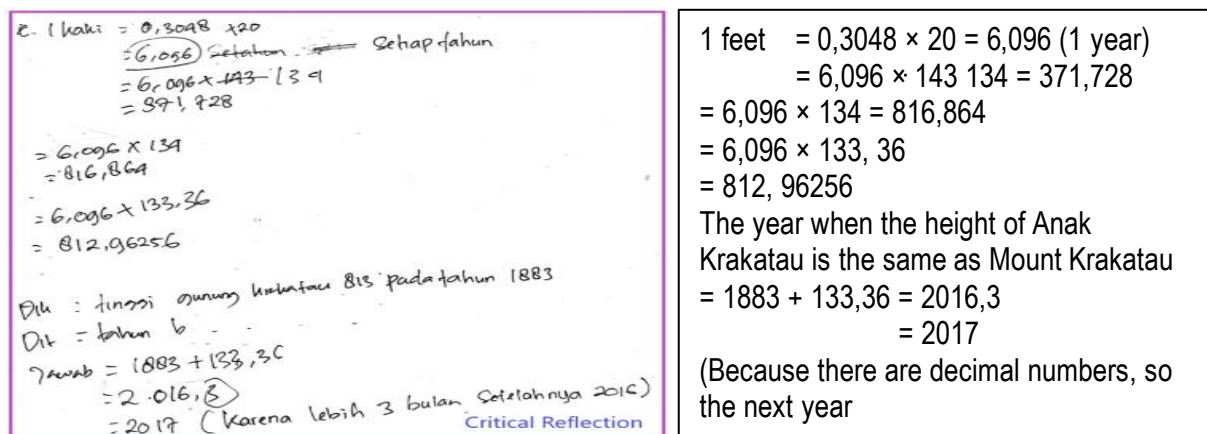 e. 1 kaki = 0,3048 x20
= 6,096 Setahun Setiap tahun
= 6,096 x 143 134
= 371,728
= 6,096 x 134
= 816,864
= 6,096 x 133,36
= 812,96256
Dik : tinggi gunung krakatau 813 pada tahun 1883
Dit = tahun b
Jawab = 1883 + 133,36
= 2.016,3
= 2017 (karena lebih 3 bulan setelahnya 2016)
Critical Reflection
1 feet = 0,3048 × 20 = 6,096 (1 year)
= 6,096 × 143 134 = 371,728
= 6,096 × 134 = 816,864
= 6,096 × 133, 36
= 812, 96256
The year when the height of Anak
Krakatau is the same as Mount Krakatau
= 1883 + 133,36 = 2016,3
= 2017
(Because there are decimal numbers, so
the next year